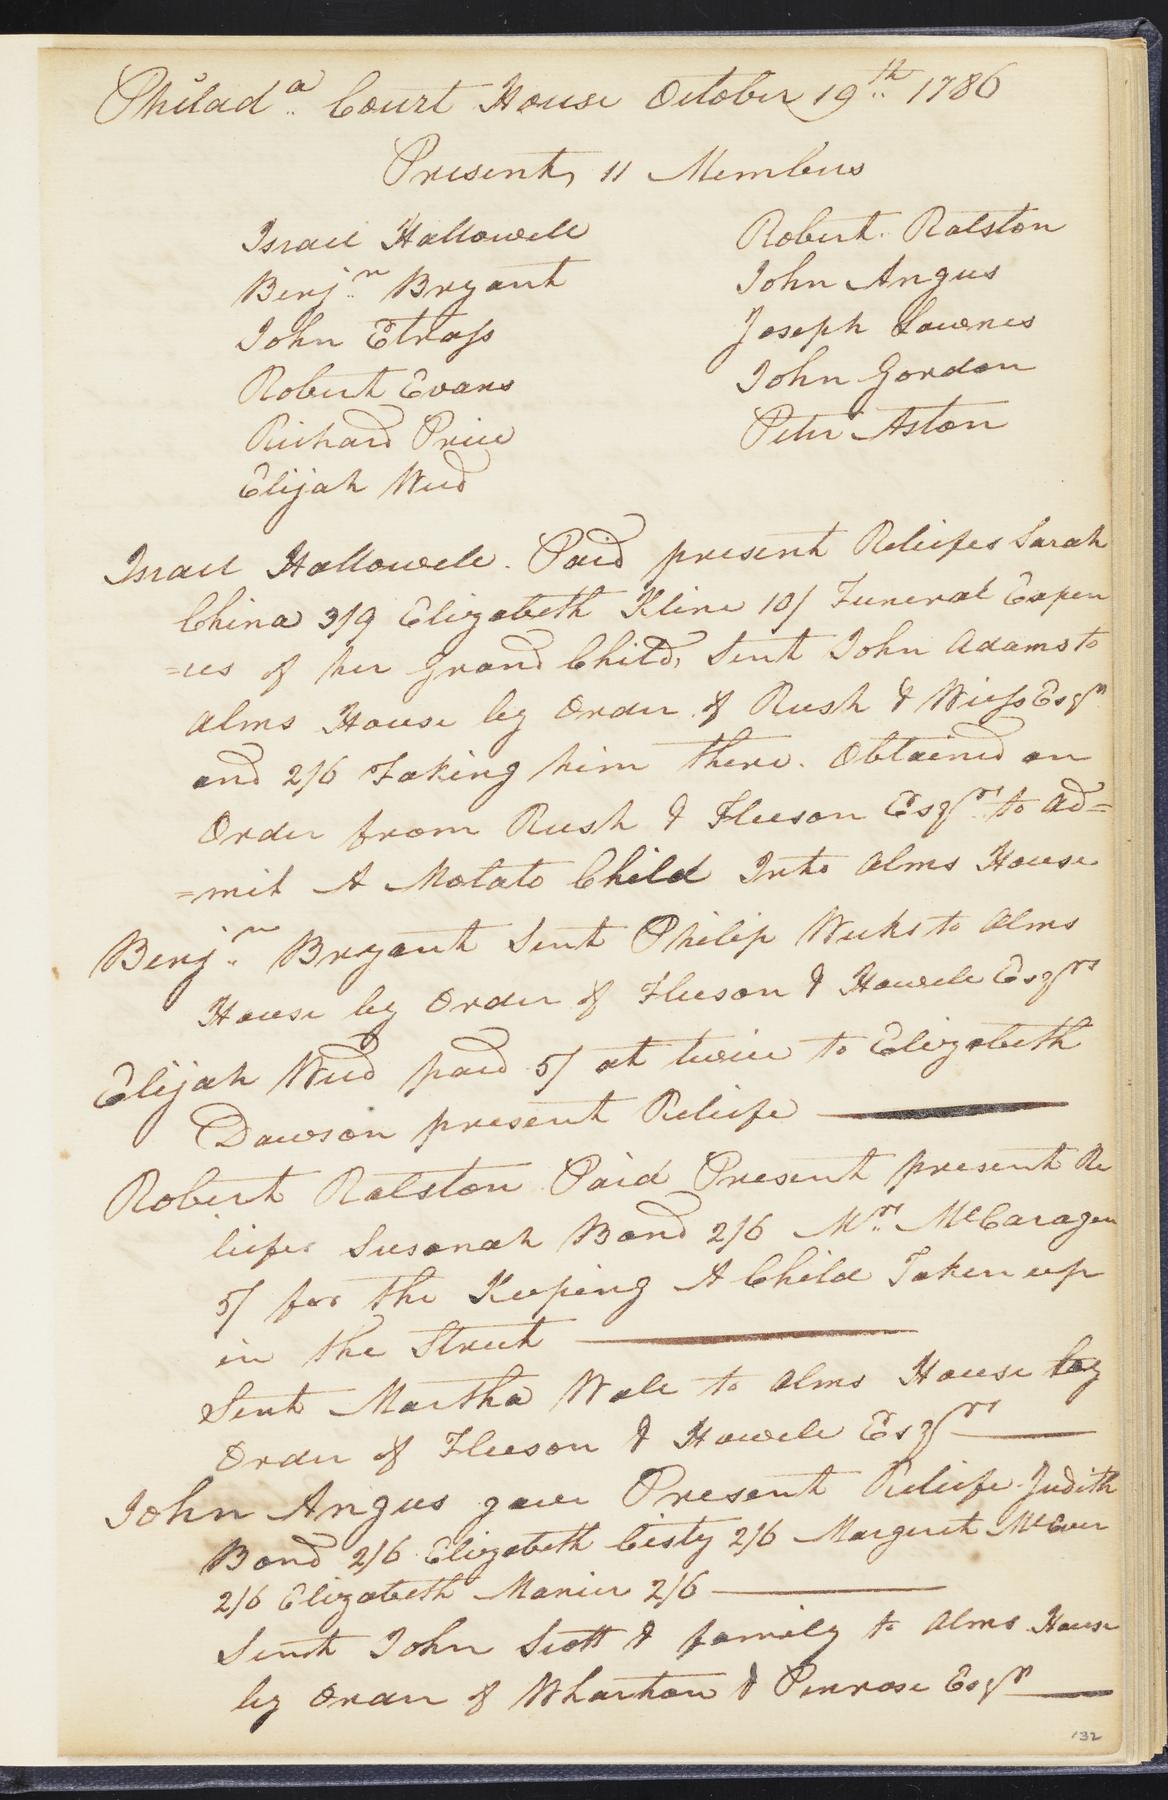 Philad.a Court House October 19th 1786
Present, 11 Members
Israel Hallowell
Benj.n Bryant
John Stross
Robert Evans
Richard Price
Elijah Weed
Robert Ralston
John Angus
Joseph Lownes
John Gordon
Peter Aston
Israel Hallowell. Paid present Reliefes Sarah
China 3/9 Elizabeth Kline 10/ Funeral Expen
=ces of her Grand Child, Sent John Adams to
Alms House by Order of Rush & Wiess Esqrs
and 2/6 Taking him there. Obtained an
Order from Rush & Fleeson Esqrs to ad=
=mit A Molato Child Into Alms House
Benj.n Bryant Sent Philip Weeks to Alms
House by Order of Fleeson & Howell Esqrs
Elijah Weed paid 5/ at twice to Elizabeth
Dawson present Reliefe
Robert Ralston Paid Present present Re
liefes Susanah Bond 2/6 Mrs McCaragen
5/ for the Keeping A Child Taken up
in the Street
Sent Martha Wale to Alms House by
Order of Fleeson & Howell Esqrs
John Angus gave Present Reliefe Judith
Bond 2/6 Elizabeth Cisty 2/6 Margeret McEver
2/6 Elizabeth Manier 2/6
Sent John Scott & family to Alms House
by Order of Wharton & Penrose Esqrs
132